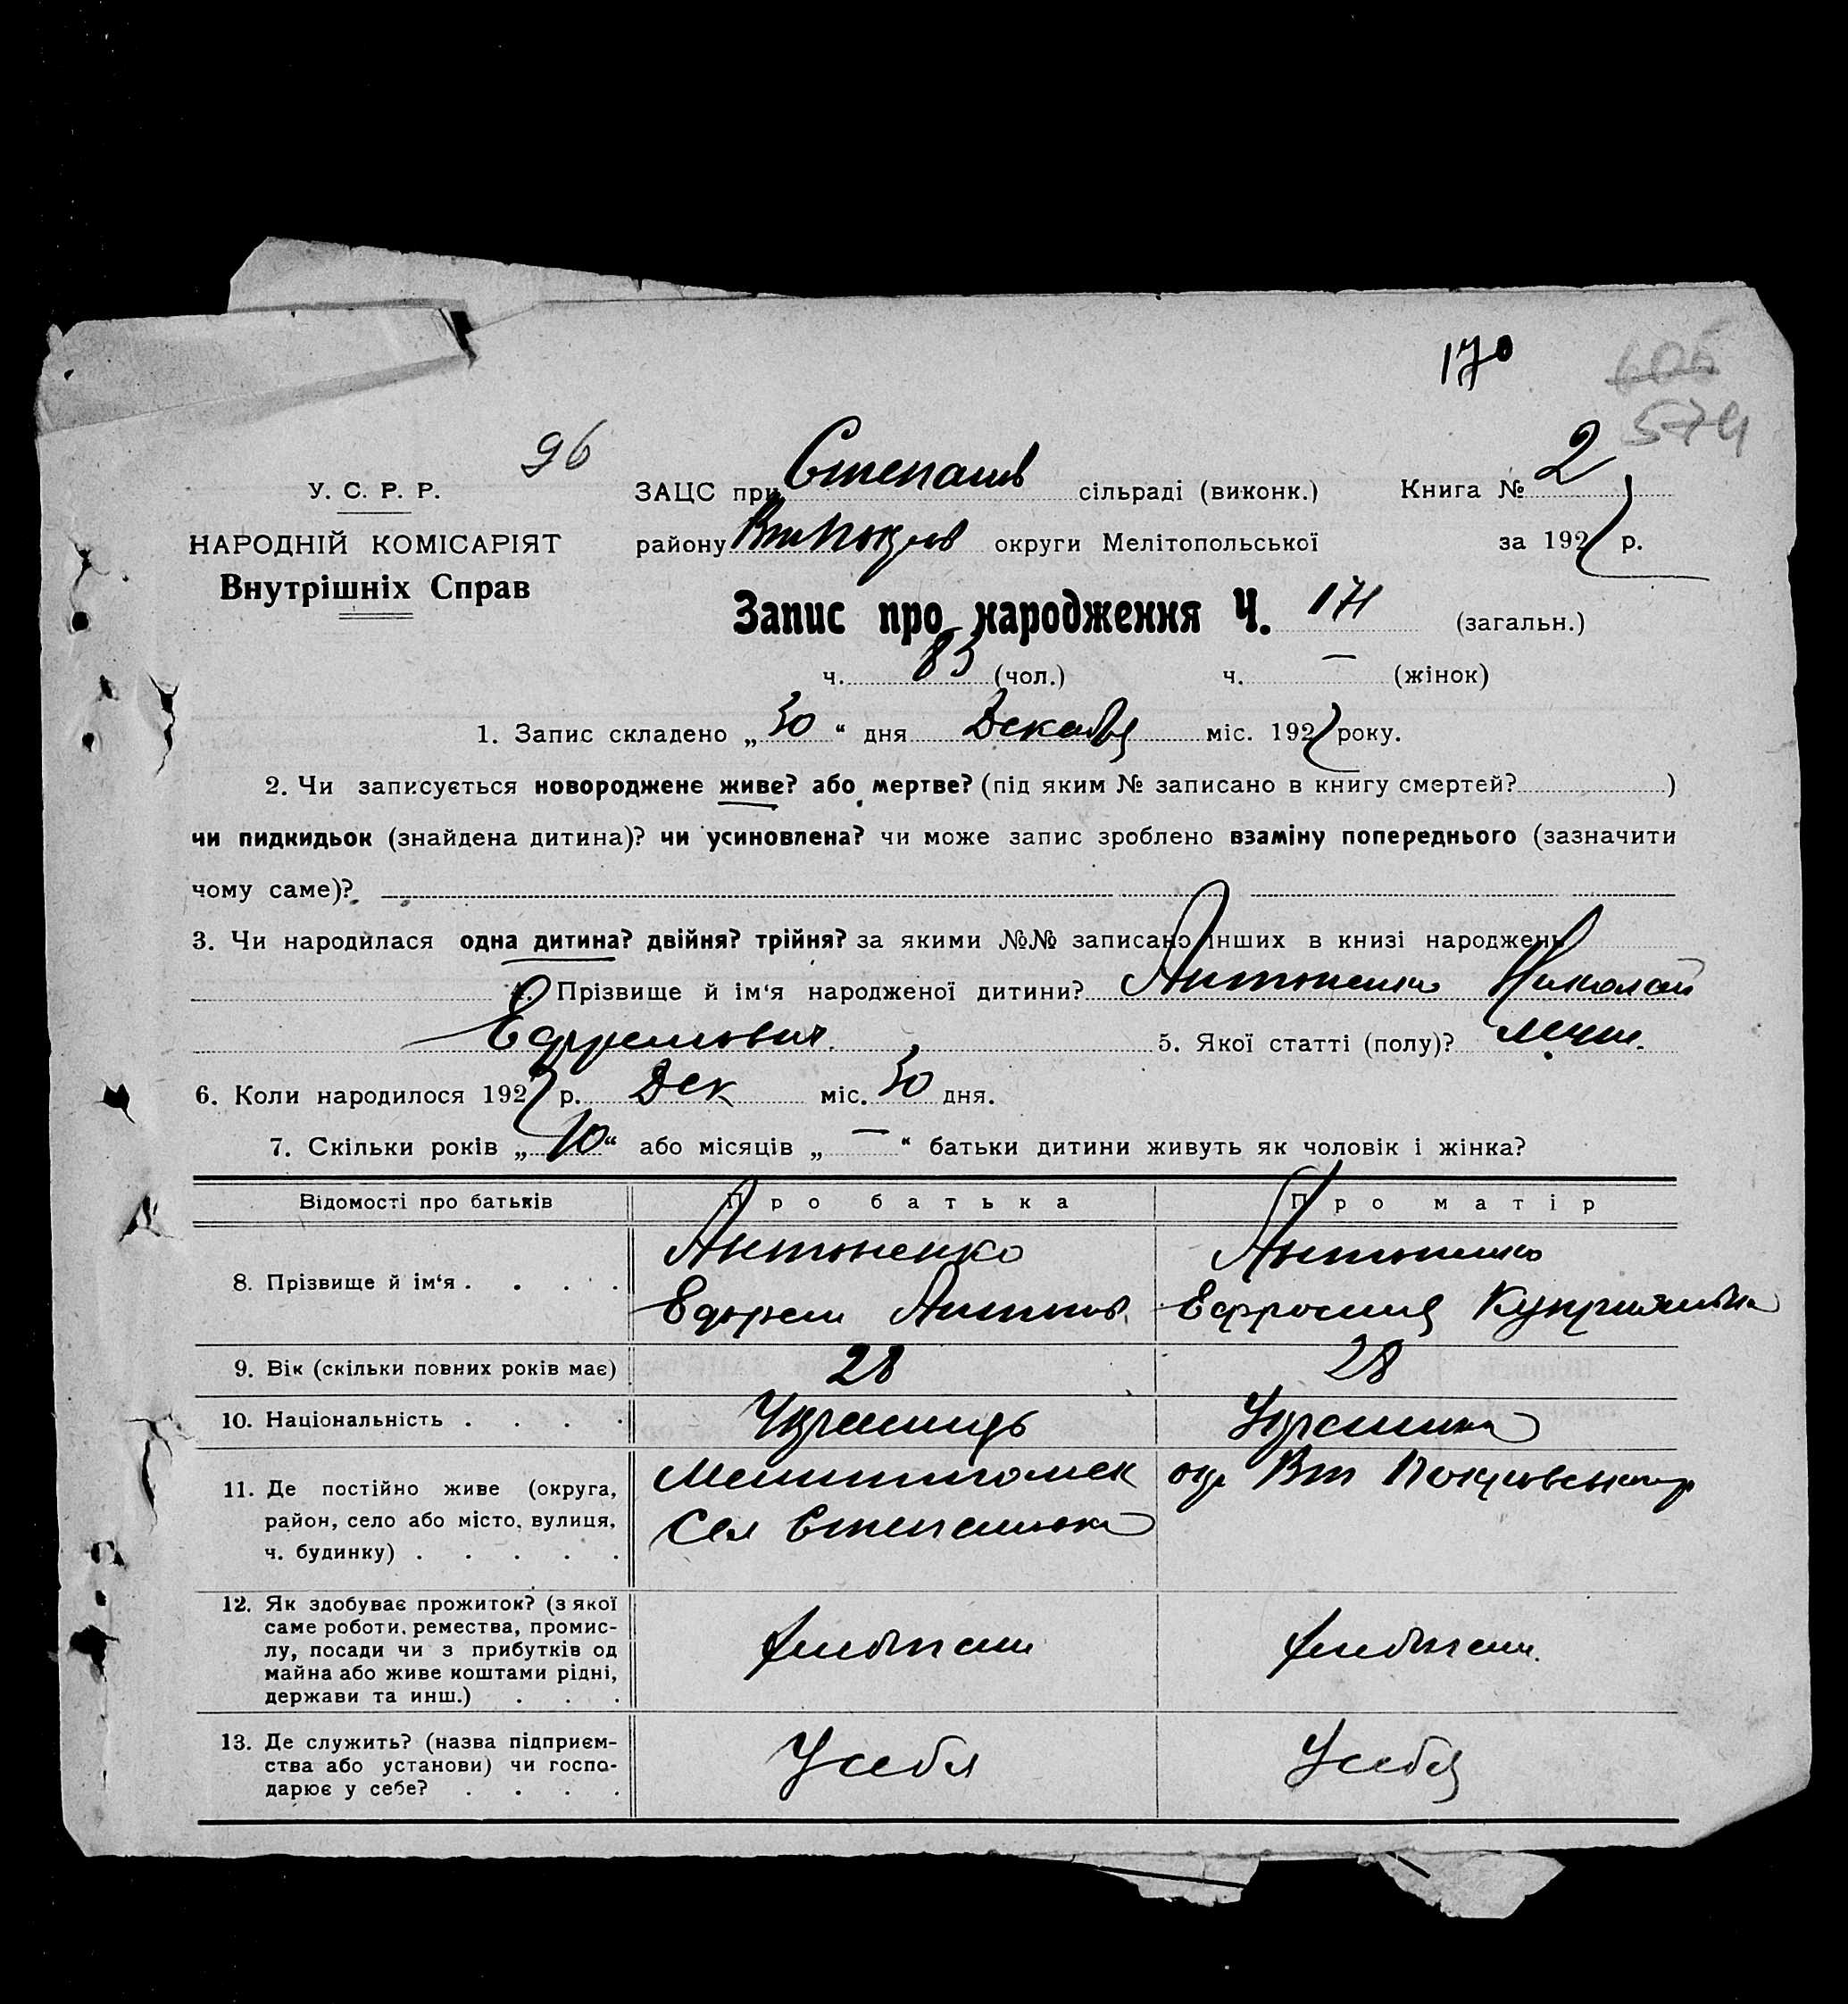 170
605
574
96
У. С. Р. Р.
НАРОДНІЙ КОМІСАРІЯТ
Внутрішніх Справ
ЗАЦС при Степанів сільраді (виконк.) Книга № 2
району Вт Покров округи Мелітопольської за 1927 р.
Запис про народження Ч. 171 (загальн.)
ч. 83 (чол.) ч. — (жінок)
1. Запис складено „30“ дня Декабря міс. 1927 року.
2. Чи записується новороджене живе? або мертве? (під яким № записано в книгу смертей? )
чи пидкидьок (знайдена дитина)? чи усиновлена? чи може запис зроблено взаміну попереднього (зазначити
чому саме)?
3. Чи народилася одна дитина? двійня? трійня? за якими №№ записано інших в книзі народжень
4. Прізвище й ім‘я народженої дитини? Антоненко Николай
Ефремович 5. Якої статті (полу)?
6. Коли народилося 1927 р. Дек міс. 30 дня.
7. Скільки років „10“ або місяців „—“ батьки дитини живуть як чоловік і жінка?
Відомості про батьків Про батька Про матір
8. Прізвище й ім‘я . . . . Антоненко Антоненко
Ефрем Антонов. Ефросиния Куприяновна
9. Вік (скільки повних років має) 28 28
10. Національність . . . . Украинць Украинка
11. Де постійно живе (округа, район, село або місто, вулиця, ч. будинку) . . . . . Мелитополск окр Вт Покровськ р
Село Степановка
12. Як здобуває прожиток? (з якої
саме роботи, ремества, промис-
лу, посади чи з прибутків од
майна або живе коштами рідні,
держави та инш.) . . . хлебопаш хлебопаш.
13. Де служить? (назва підприєм-
ства або установи) чи госпо-
дарює у себе? . . . . У себя У себя